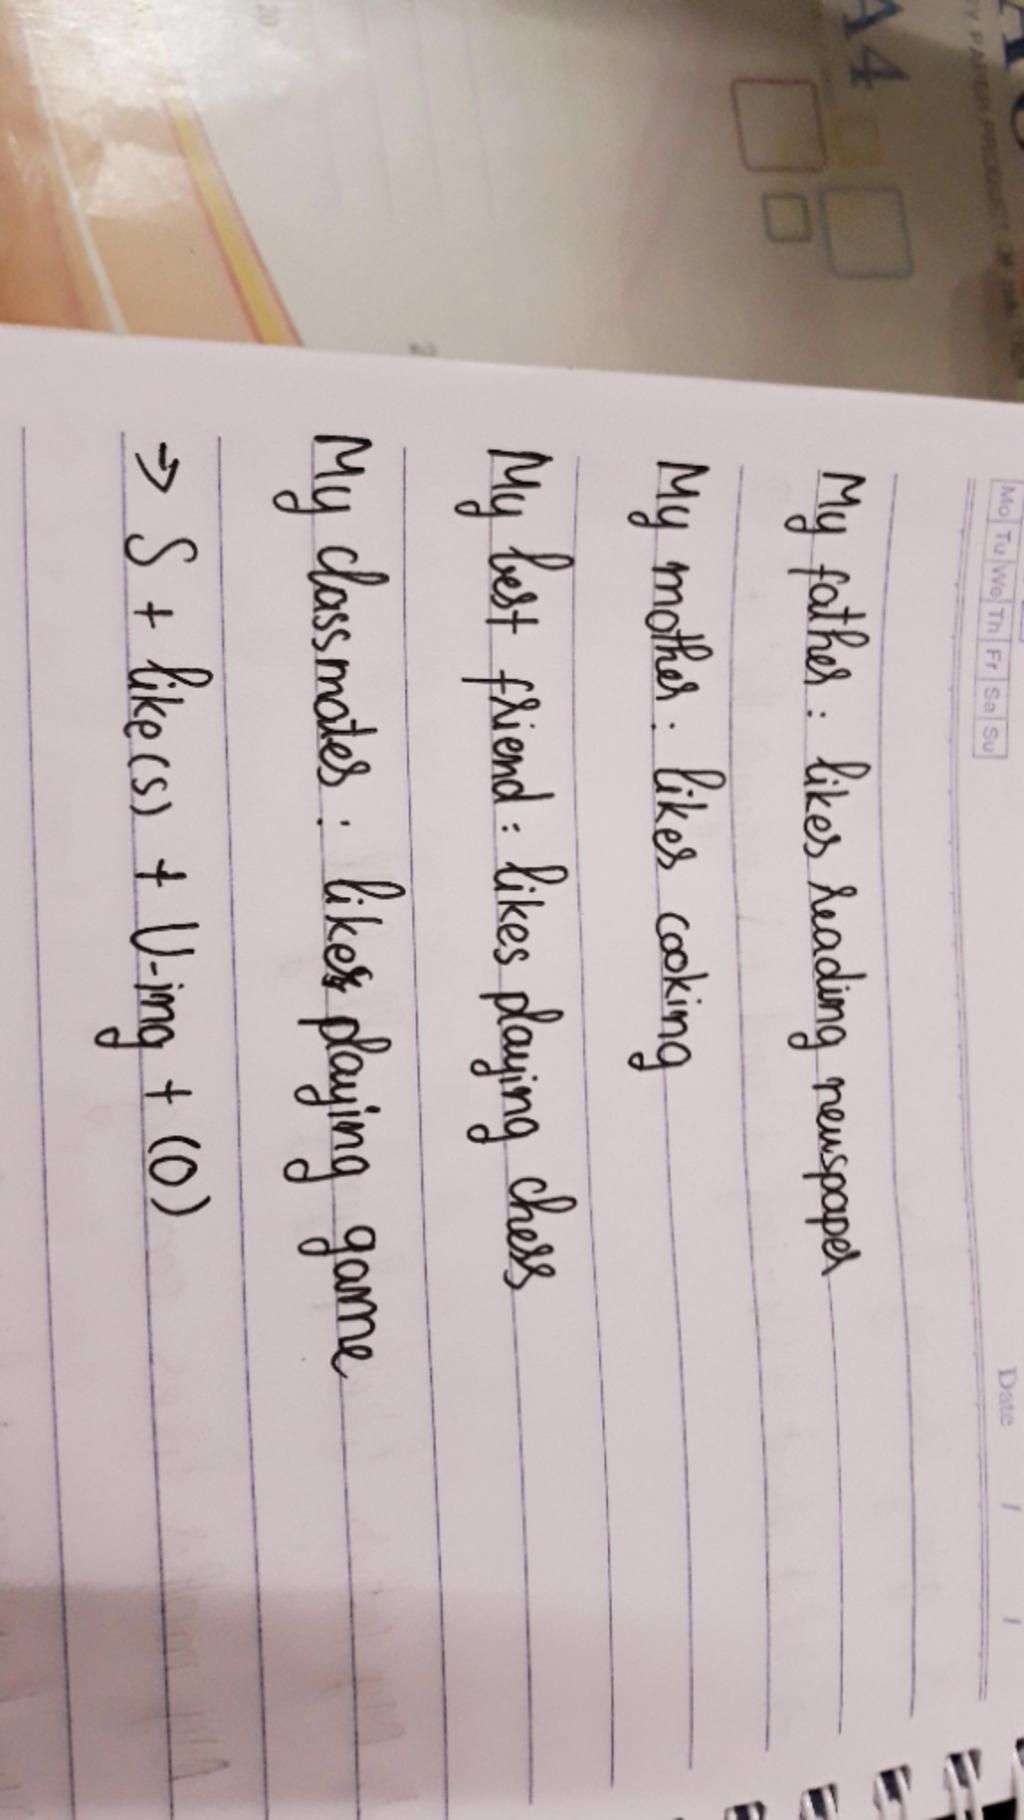 A4
Y PAPER PRODUCT
20
2
Mo Tu We Th Fr Sa Su
Date / /
My father : likes reading newspaper
My mother : likes cooking
My best friend : likes playing chess
My classmates : likes playing game
→ S + like(s) + V-ing + (O)